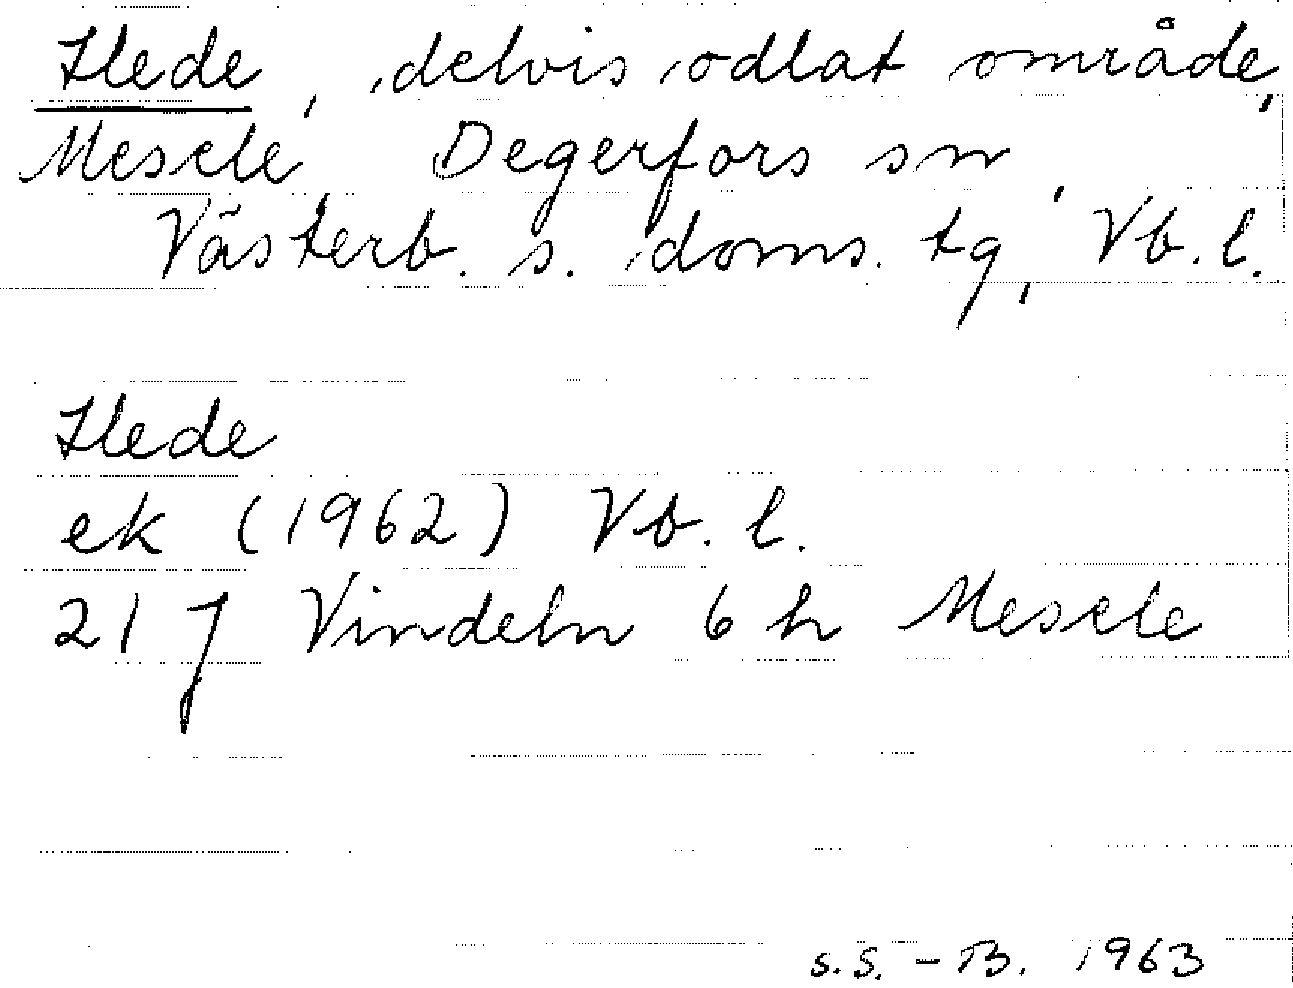 Hede, delvis odlat område,
Mesele, Degerfors sn,
Västerb. s. doms. tg, Vb. l.
Hede
ek (1962) Vb. l.
21 J Vindeln 6 h Mesele
S.S. - B. 1963